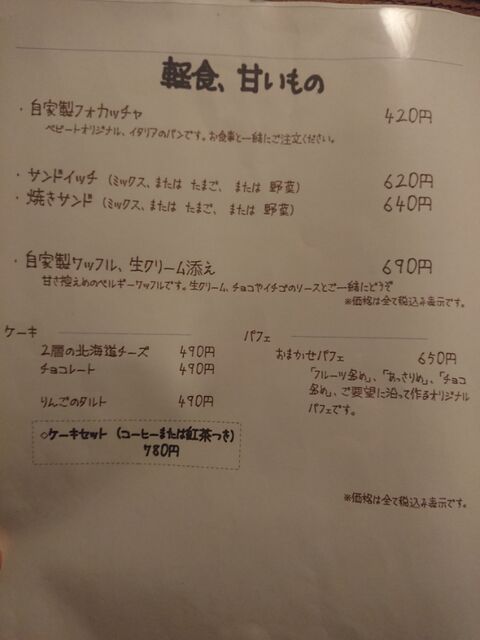 軽食、甘いもの
・自家製フォカッチャ 420円
ペピートオリジナル、イタリアのパンです。お食事と一緒にご注文ください。
・サンドイッチ (ミックス、または たまご、または 野菜) 620円
・焼きサンド (ミックス、または たまご、または 野菜) 640円
・自家製ワッフル、生クリーム添え 690円
甘さ控えめのベルギーワッフルです。生クリーム、チョコやイチゴのソースとご一緒にどうぞ
※価格は全て税込み表示です。
ケーキ
2層の北海道チーズ 490円
チョコレート 490円
りんごのタルト 490円
◇ケーキセット (コーヒーまたは紅茶つき)
780円
パフェ
おまかせパフェ 650円
「フルーツ多め」、「あっさりめ」、「チョコ
多め」、ご要望に沿って作るオリジナル
パフェです。
※価格は全て税込み表示です。